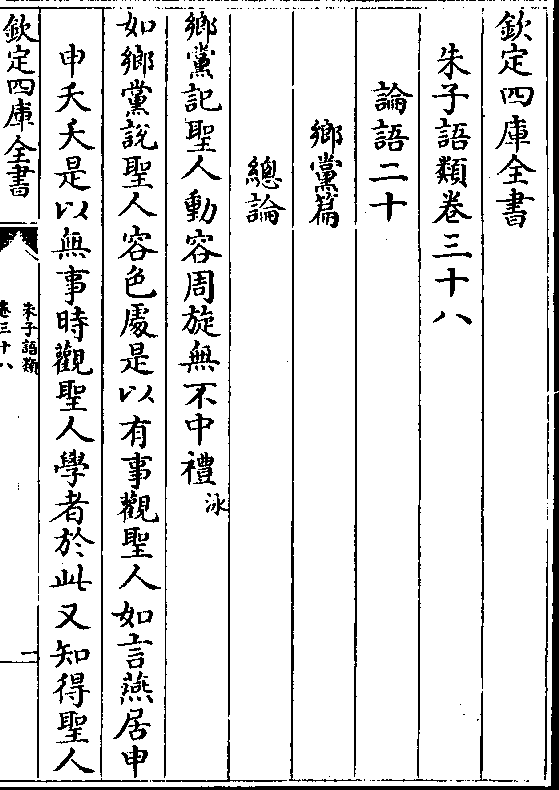 欽定四庫全書
朱子語類卷三十八
論語二十
鄉黨篇
總論
鄉黨記聖人動容周旋無不中禮泳
如鄉黨說聖人容色處是以有事觀聖人如言燕居申
申夭夭是以無事時觀聖人學者於此又知得聖人
欽定四庫全書
朱子語類
卷三十八
一